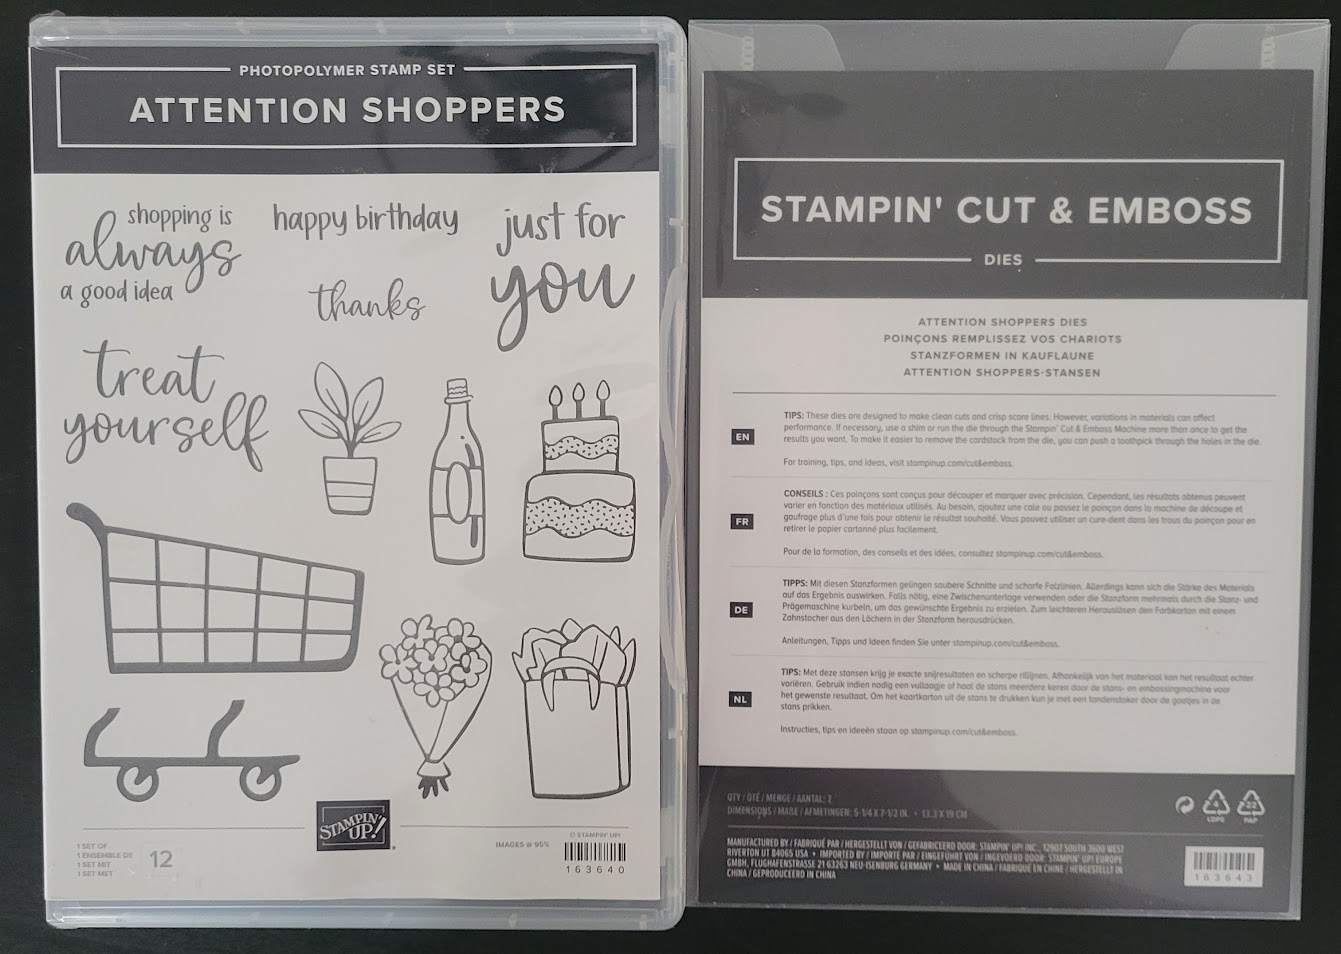 PHOTOPOLYMER STAMP SET
ATTENTION SHOPPERS
shopping is
always
a good idea
happy birthday
thanks
just for
you
treat
yourself
STAMPIN' UP!
1 SET OF
1 ENSEMBLE DE
1 SET MIT
1 SET MET
12
IMAGES @ 95%
© STAMPIN' UP!
163640
STAMPIN' CUT & EMBOSS
DIES
ATTENTION SHOPPERS DIES
POINÇONS REMPLISSEZ VOS CHARIOTS
STANZFORMEN IN KAUFLAUNE
ATTENTION SHOPPERS-STANSEN
EN
TIPS: These dies are designed to make clean cuts and crisp score lines. However, variations in materials can affect
performance. If necessary, use a shim or run the die through the Stampin' Cut & Emboss Machine more than once to get the
results you want. To make it easier to remove the cardstock from the die, you can push a toothpick through the holes in the die.
For training, tips, and ideas, visit stampinup.com/cut&emboss.
FR
CONSEILS : Ces poinçons sont conçus pour découper et marquer avec précision. Cependant, les résultats obtenus peuvent
varier en fonction des matériaux utilisés. Au besoin, ajoutez une cale ou passez le poinçon dans la machine de découpe et
gaufrage plus d'une fois pour obtenir le résultat souhaité. Vous pouvez utiliser un cure-dent dans les trous du poinçon pour en
retirer le papier cartonné plus facilement.
Pour de la formation, des conseils et des idées, consultez stampinup.com/cut&emboss.
DE
TIPPS: Mit diesen Stanzformen gelingen saubere Schnitte und scharfe Falzlinien. Allerdings kann sich die Stärke des Materials
auf das Ergebnis auswirken. Falls nötig, eine Zwischenunterlage verwenden oder die Stanzform mehrmals durch die Stanz- und
Prägemaschine kurbeln, um das gewünschte Ergebnis zu erzielen. Zum leichteren Herauslösen den Farbkarton mit einem
Zahnstocher aus den Löchern in der Stanzform herausdrücken.
Anleitungen, Tipps und Ideen finden Sie unter stampinup.com/cut&emboss.
NL
TIPS: Met deze stansen krijg je exacte snijresultaten en scherpe rillijnen. Afhankelijk van het materiaal kan het resultaat echter
variëren. Gebruik indien nodig een vullaagje of haal de stans meerdere keren door de stans- en embossingmachine voor
het gewenste resultaat. Om het kaartkarton uit de stans te drukken kun je met een tandenstoker door de gaatjes in de
stans prikken.
Instructies, tips en ideeën staan op stampinup.com/cut&emboss.
QTY / QTÉ / MENGE / AANTAL: 7
DIMENSIONS / MAßE / AFMETINGEN: 5-1/4 X 7-1/2 IN. • 13.3 X 19 CM
4
LDPE
22
PAP
MANUFACTURED BY / FABRIQUÉ PAR / HERGESTELLT VON / GEFABRICEERD DOOR: STAMPIN' UP! INC., 12907 SOUTH 3600 WEST
RIVERTON UT 84065 USA • IMPORTED BY / IMPORTÉ PAR / EINGEFÜHRT VON / INGEVOERD DOOR: STAMPIN' UP! EUROPE
GMBH, FLUGHAFENSTRASSE 21 63263 NEU-ISENBURG GERMANY • MADE IN CHINA / FABRIQUÉ EN CHINE / HERGESTELLT IN
CHINA / GEPRODUCEERD IN CHINA
163643